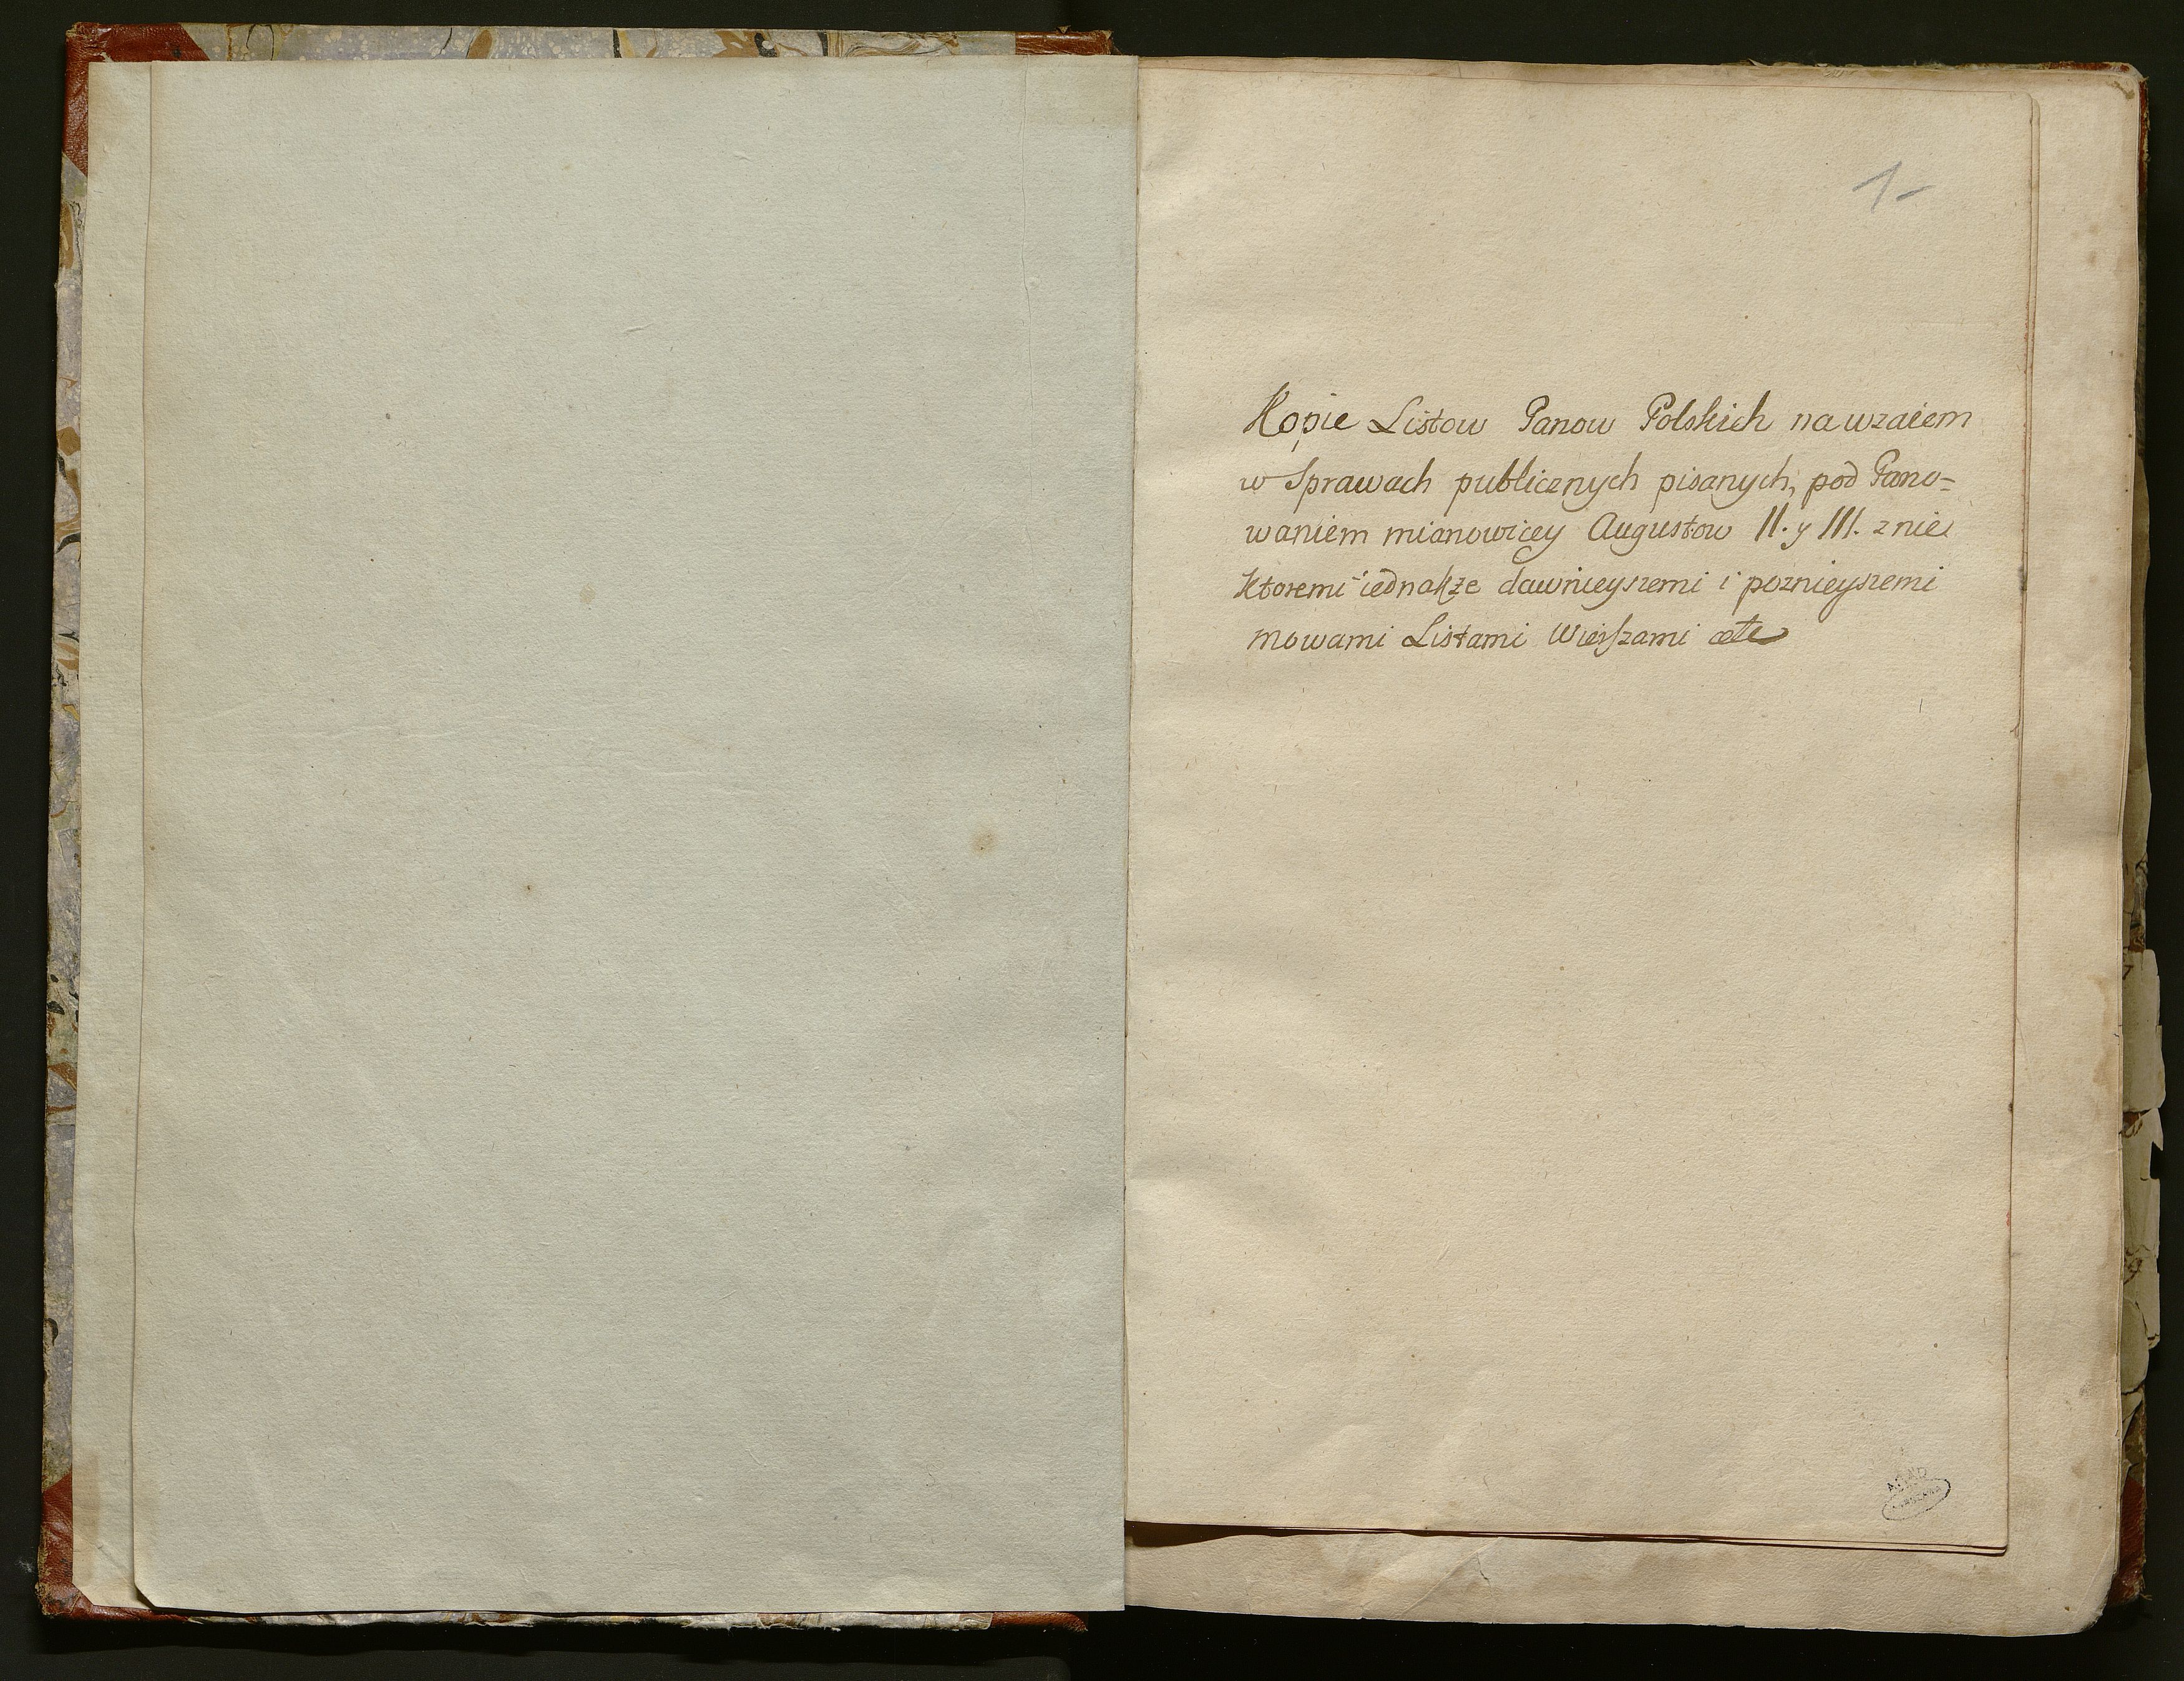 1-
Kopie Listow Panow Polskich na wzaiem
w Sprawach publicznych pisanych, pod Pano=
waniem mianowicey Augustow II. y III. z nie
ktoremi iednakże dawnieyszemi i poznieyszemi
mowami Listami Wierszami etc